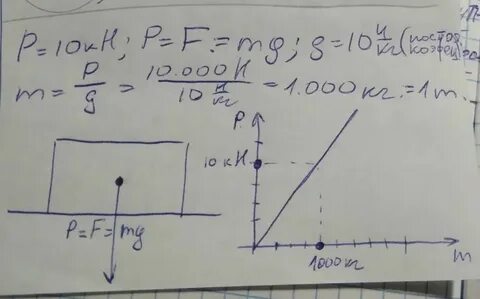 P=10кН; P=F=mg; g=10 Н/кг (постоя
коэфф
m= P/g = 10.000Н / 10 Н/кг = 1.000кг.=1т.
P
10кН
P=F=mg
1000кг
m